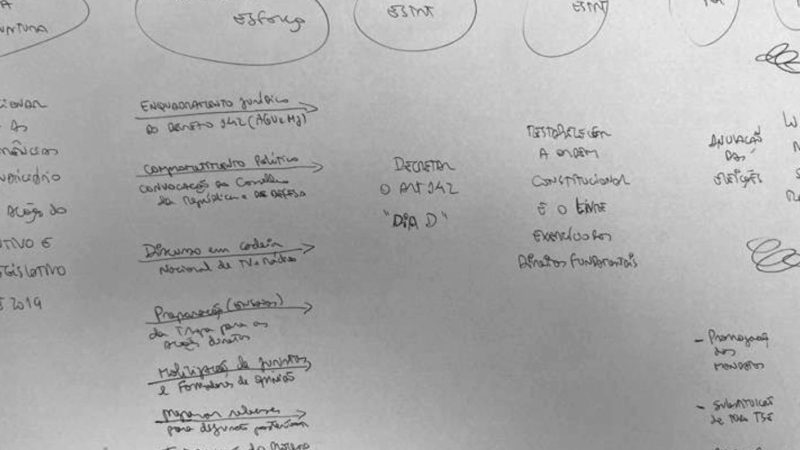 A
NTURA
ESFORÇO
EST INT
ESINT
CIONAR
AS
DICIÁRIO
AÇÃO DO
UTIVO E
EGISLATIVO
2019
ENQUADRAMENTO JURÍDICO
DO DECRETO 142 (AGU e MJ)
COMPROMETIMENTO POLÍTICO
CONVOCAÇÃO DO Conselho
da República e DE DEFESA
Discurso em cadeia
Nacional de TV e Rádio
Preparação (ENSAIOS)
da Tropa para as
ações diretas
Mobilização de juristas
e Formadores de opinião
Preparar releases
DECRETAR
O ART 142
"DIA D"
RESTABELECER
A ORDEM
CONSTITUCIONAL
E O LIVRE
EXERCÍCIO DOS
DIREITOS FUNDAMENTAIS
ANULAÇÃO
DAS
ELEIÇÕES
- Prorrogação
dos
MANDATOS
- Substituição
de TSE